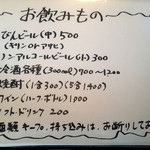 お飲みもの
びんビール(中) 500
(キリンOrアサヒ)
ノンアルコールビール(小) 300
冷酒各種(300ml) 700〜1200
焼酎(1合300)(5合1400)
ワイン(ハーフボトル) 1000
ソフトドリンク 200
酒類キープ、持ち込みは、お断りしてお